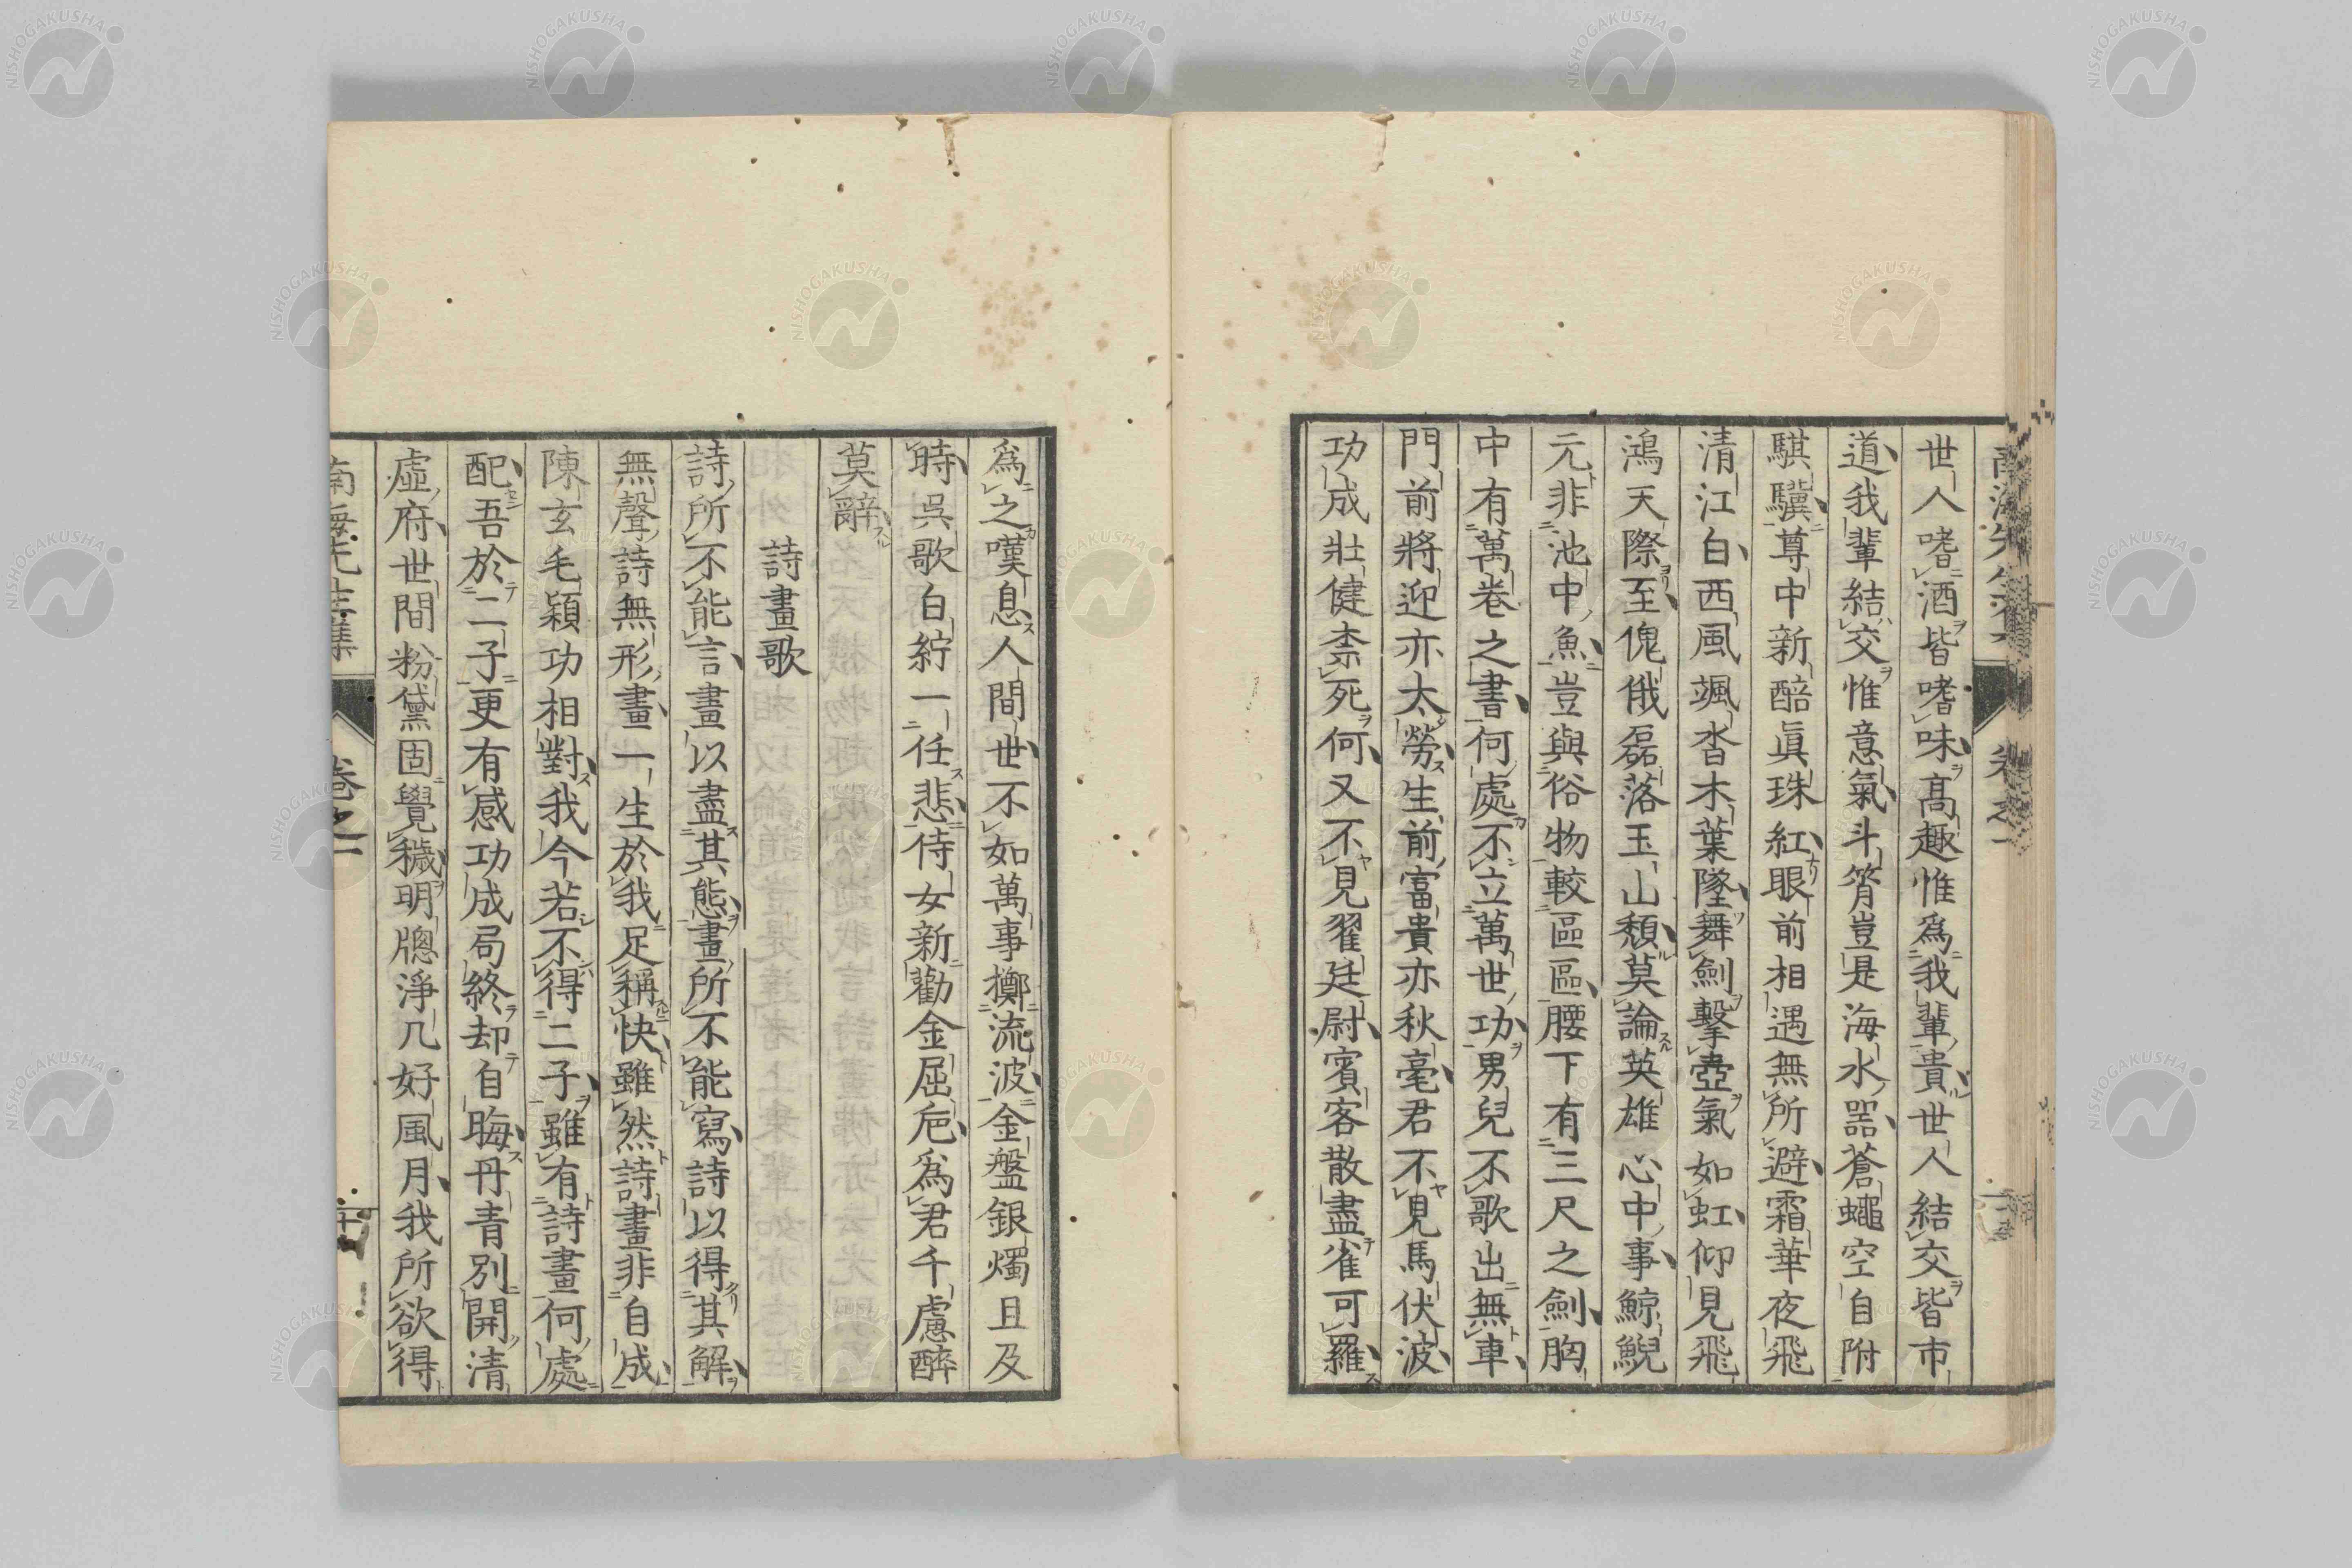 世人嗜酒皆嗜味高趣惟爲我輩貴世人結交皆市
道我輩結交惟意氣斗筲豈是海水器蒼蠅空自附
騏驥尊中新醅眞珠紅眼前相遇無所避霜華夜飛
清江白西風颯沓木葉墜舞劍擊壺氣如虹仰見飛
鴻天際至傀俄磊落玉山頽莫論英雄心中事鯨鯢
元非池中魚豈與俗物較區區腰下有三尺之劍胸
中有萬卷之書何處不立萬世功男兒不歌出無車
門前將迎亦太勞生前富貴亦秋毫君不見馬伏波
功成壯健柰死何又不見翟廷尉賓客散盡雀可羅
爲之嘆息人間世不如萬事擲流波金盤銀燭且及
時吳歌白紵一任悲侍女新勸金屈巵爲君千慮醉
莫辭
詩畫歌
詩所不能言畫以盡其態畫所不能寫詩以得其解
無聲詩無形畫一生於我足稱快雖然詩畫非自成
陳玄毛穎功相對我今若不得二子雖有詩畫何處
配吾於二子更有感功成局終却自晦丹青別開清
虛府世間粉黛固覺穢明牕淨几好風月我所欲得
南海先生集 卷之一